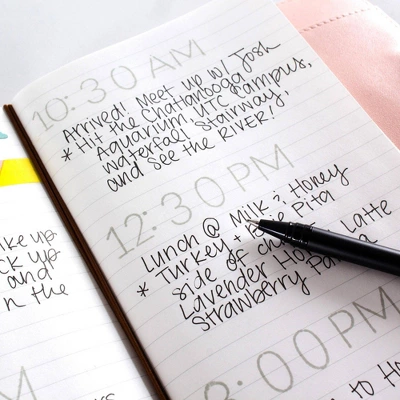 ike up
ck up
and
n the
10:30 AM
Arrived! Meet up w/ Josh
* Hit the Chattanooga
Aquarium, UTC Campus,
Waterfall Stairway,
and See the RIVER!
12:30 PM
Lunch @ Milk & Honey
* Turkey + Pita
side of
Lavender Latte
Strawberry
:00 PM
to Ho